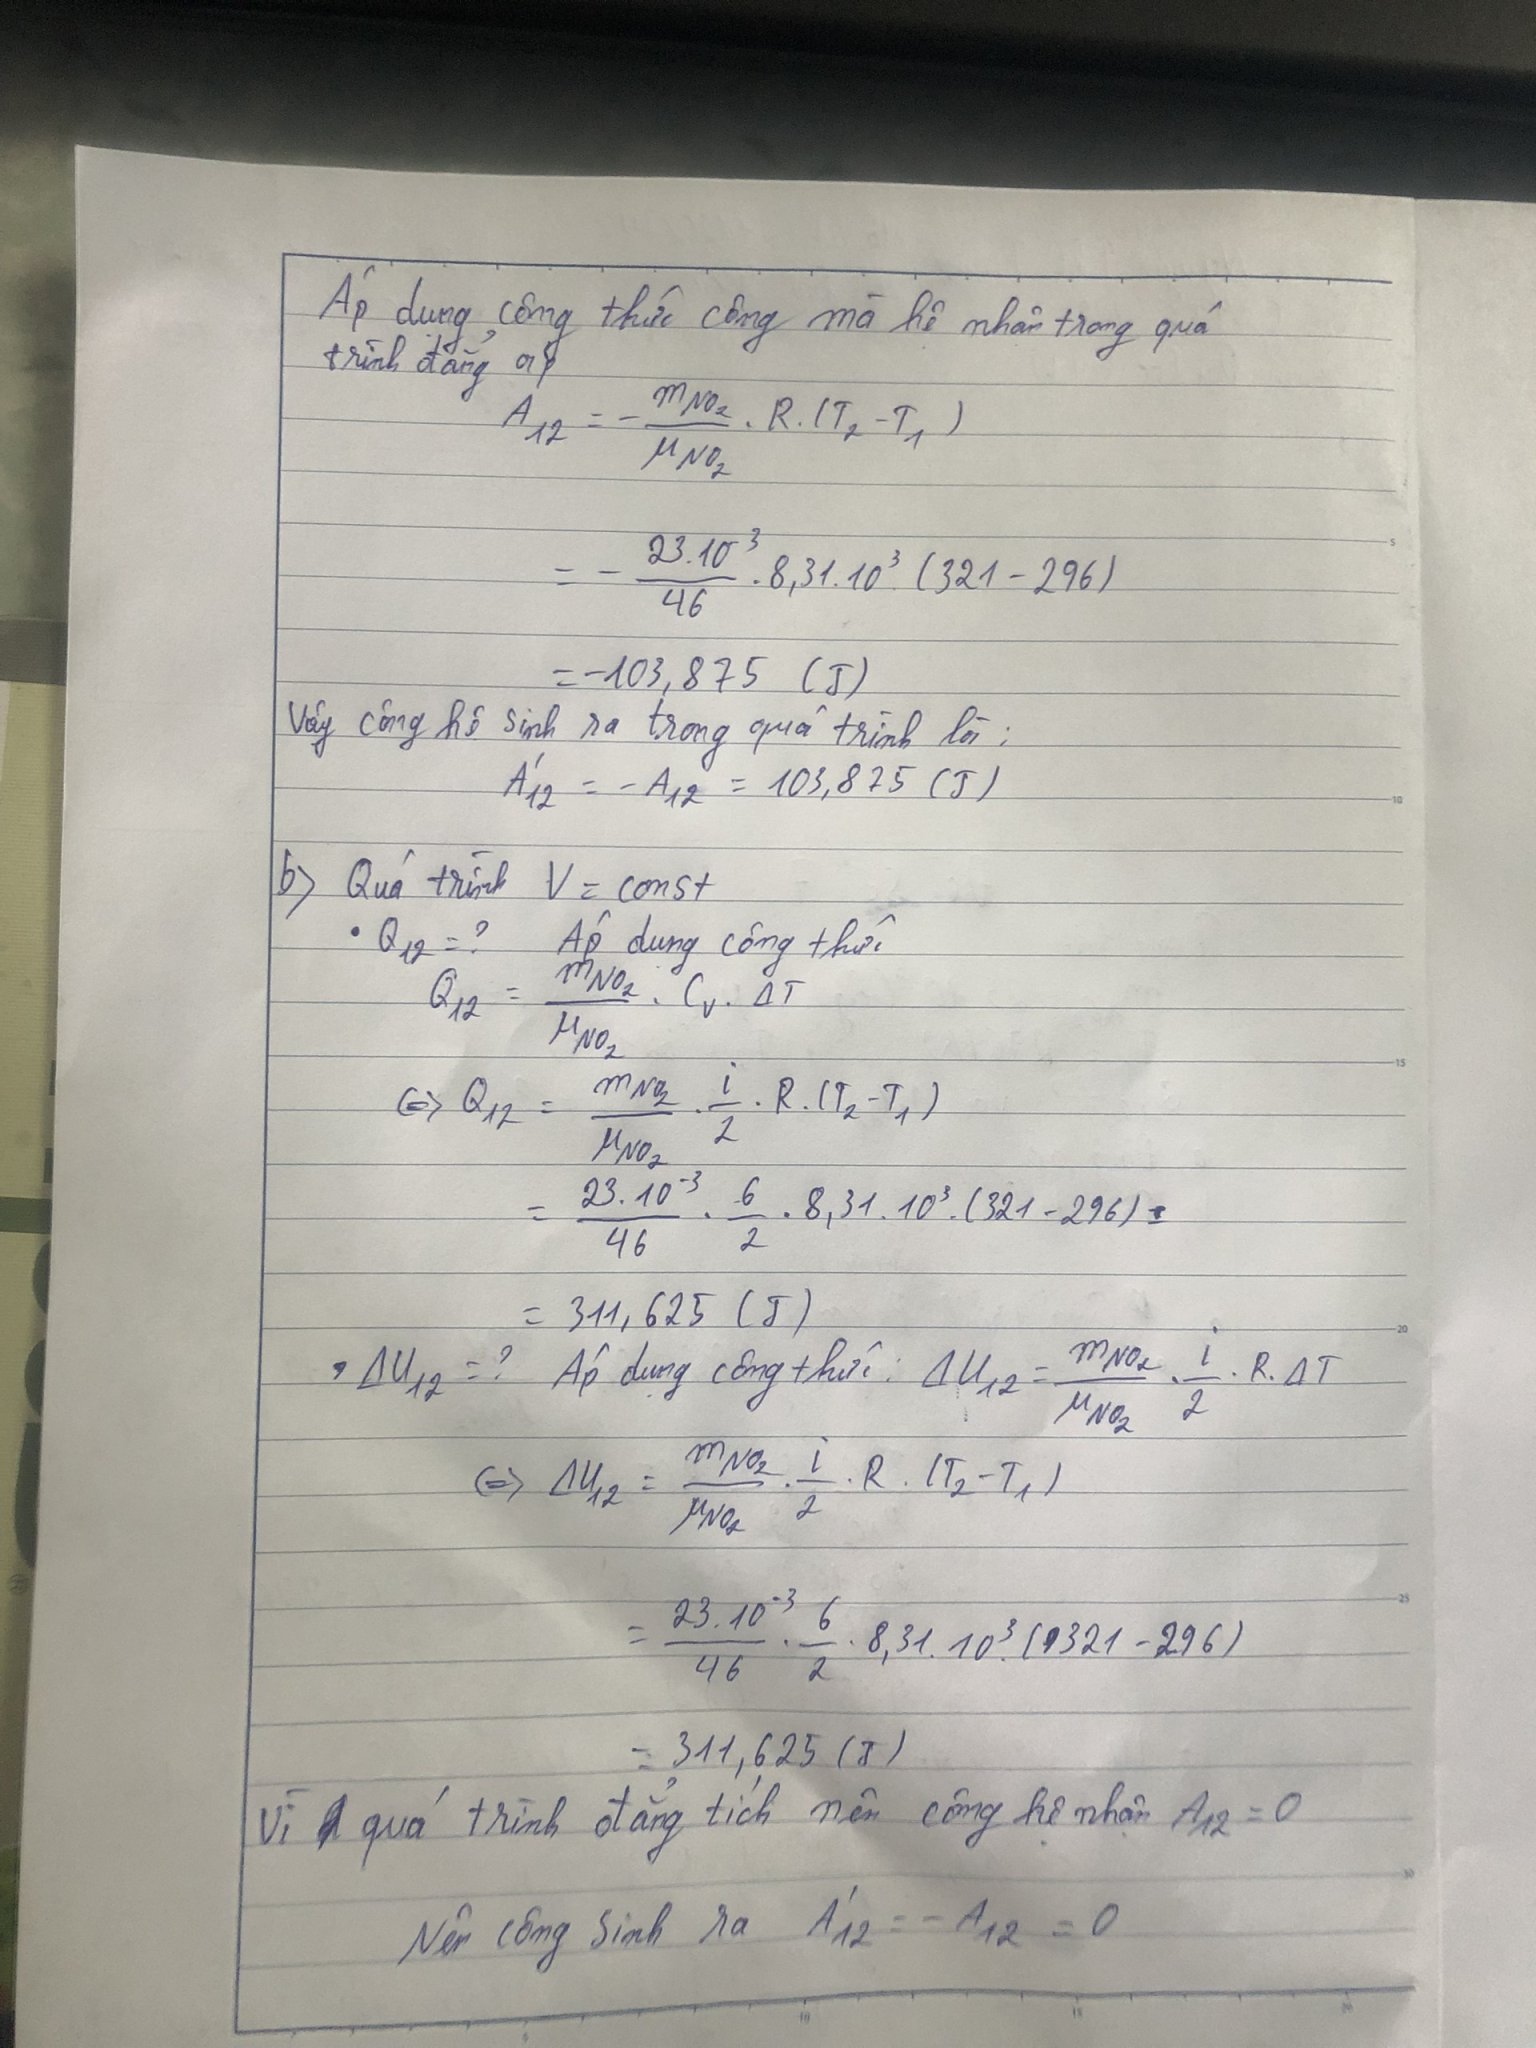 Áp dụng công thức công mà hệ nhân trong quá
trình đẳng áp
A₁₂ = - m_NO₂/μ_NO₂ . R. (T₂ - T₁)
= - 23.10⁻³/46 . 8,31.10³ (321 - 296)
= -103,875 (J)
Vậy công hệ sinh ra trong quá trình là :
A'₁₂ = - A₁₂ = 103,875 (J)
b) Quá trình V = const
• Q₁₂ = ? Áp dụng công thức
Q₁₂ = m_NO₂/μ_NO₂ . C_v. ΔT
(=) Q₁₂ = m_NO₂/μ_NO₂ . i/2 . R. (T₂ - T₁)
= 23.10⁻³/46 . 6/2 . 8,31.10³.(321 - 296) =
= 311,625 (J)
• ΔU₁₂ = ? Áp dụng công thức : ΔU₁₂ = m_NO₂/μ_NO₂ . i/2 . R. ΔT
(=) ΔU₁₂ = m_NO₂/μ_NO₂ . i/2 . R . (T₂ - T₁)
= 23.10⁻³/46 . 6/2 . 8,31.10³.(321 - 296)
= 311,625 (J)
Vì quá trình đẳng tích nên công hệ nhận A₁₂ = 0
Nên công sinh ra A'₁₂ = - A₁₂ = 0
5
10
15
20
25
30
5
10
15
20